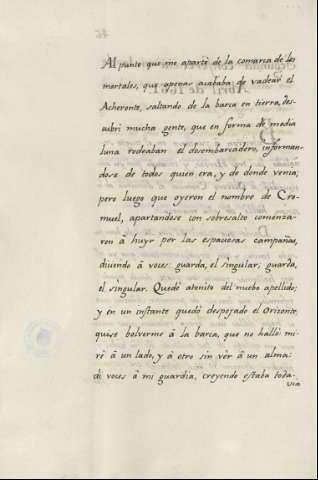 Al punto que me aparté de la comarca de los
mortales, que apenas acababa de vadear el
Acheronte, saltando de la barca en tierra, des-
cubri mucha gente, que en forma de media
luna rodeaban el desembarcadero, informan-
dose de todos quien era, y de donde venia;
pero luego que oyeron el nombre de Cro-
muel, apartandose con sobresalto comenza-
ron â huyr por las espaciosas campañas,
diciendo â voces: guarda, el singular; guarda,
el singular. Quedé atonito del nuebo apellido;
y en un instante quedó despejado el Orizonte,
quise bolverme â la barca, que no hallé mi-
ré â un lado, y â otro sin vér â un alma:
di voces â mi guardia, creyendo estaba toda-
via